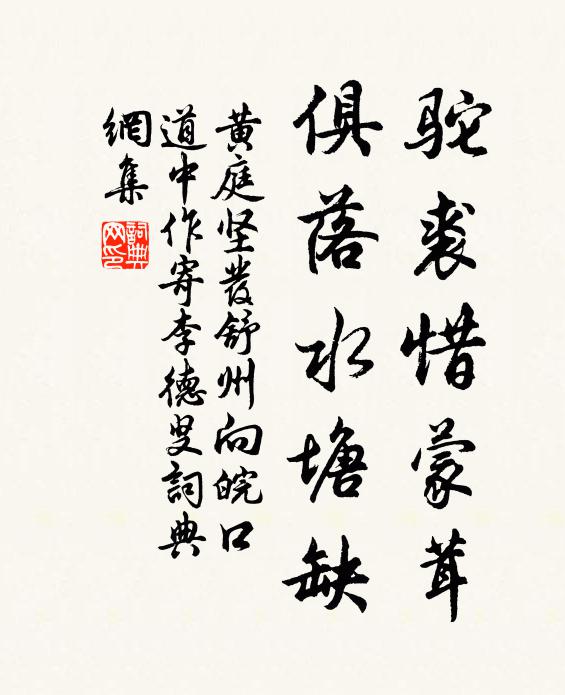 驼裘惜蒙茸
俱落水塘缺
黄庭坚發舒州向皖口
道中作寄李德叟詞典
網集
詞典网印